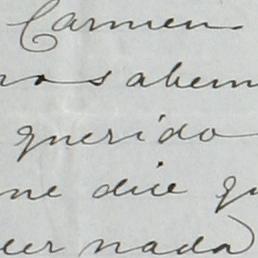 Carmen
no sabem
querido
me dice qu
eer nada